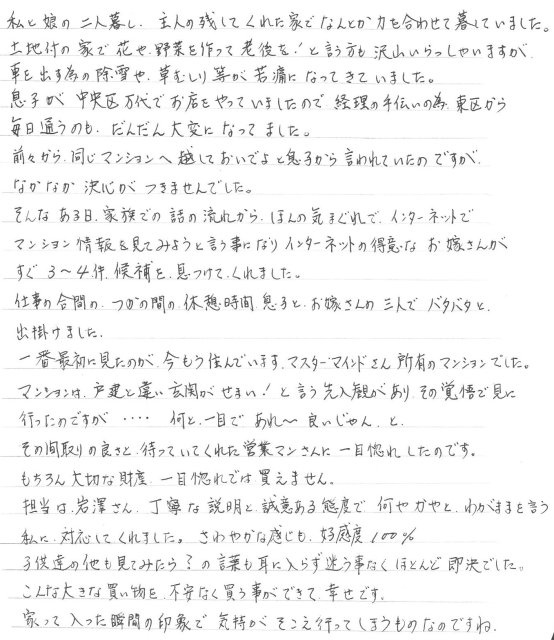 私と娘の二人暮し、主人の残してくれた家でなんとか力を合わせて暮していました。
土地付の家で花や、野菜を作って老後を!と言う方も沢山いらっしゃいますが、
車を出す為の除雪や、草むしり等が苦痛になってきていました。
息子が中央区万代でお店をやっていましたので経理の手伝いの為、東区から
毎日通うのも、だんだん大変になってました。
前々から、同じマンションへ越しておいでよと息子から言われていたのですが、
なかなか決心がつきませんでした。
そんなある日、家族での話の流れから、ほんの気まぐれで、インターネットで
マンション情報を見てみようと言う事になりインターネットの得意なお嫁さんが
すぐ3〜4件、候補を見つけてくれました。
仕事の合間の、つかの間の、休憩時間、息子と、お嫁さんの三人でバタバタと、
出掛けました。
一番最初に見たのが、今もう住んでいます、マスターマインドさん所有のマンションでした。
マンションは、戸建と違い玄関がせまい!と言う先入観があり、その覚悟で見に
行ったのですが‥‥何と、一目であれ〜良いじゃん、と、
その間取りの良さと、待っていてくれた営業マンさんに一目惚れしたのです。
もちろん大切な財産、一目惚れでは買えません。
担当は、岩澤さん、丁寧な説明と誠意ある態度で何やかやと、わがままを言う
私に、対応してくれました。さわやかな感じも、好感度100%
子供達の他も見てみたら?の言葉も耳に入らず迷う事なくほとんど即決でした。
こんな大きな買い物を、不安なく買う事ができて、幸せです。
家って入った瞬間の印象で気持がそこへ行ってしまうものなのですね。